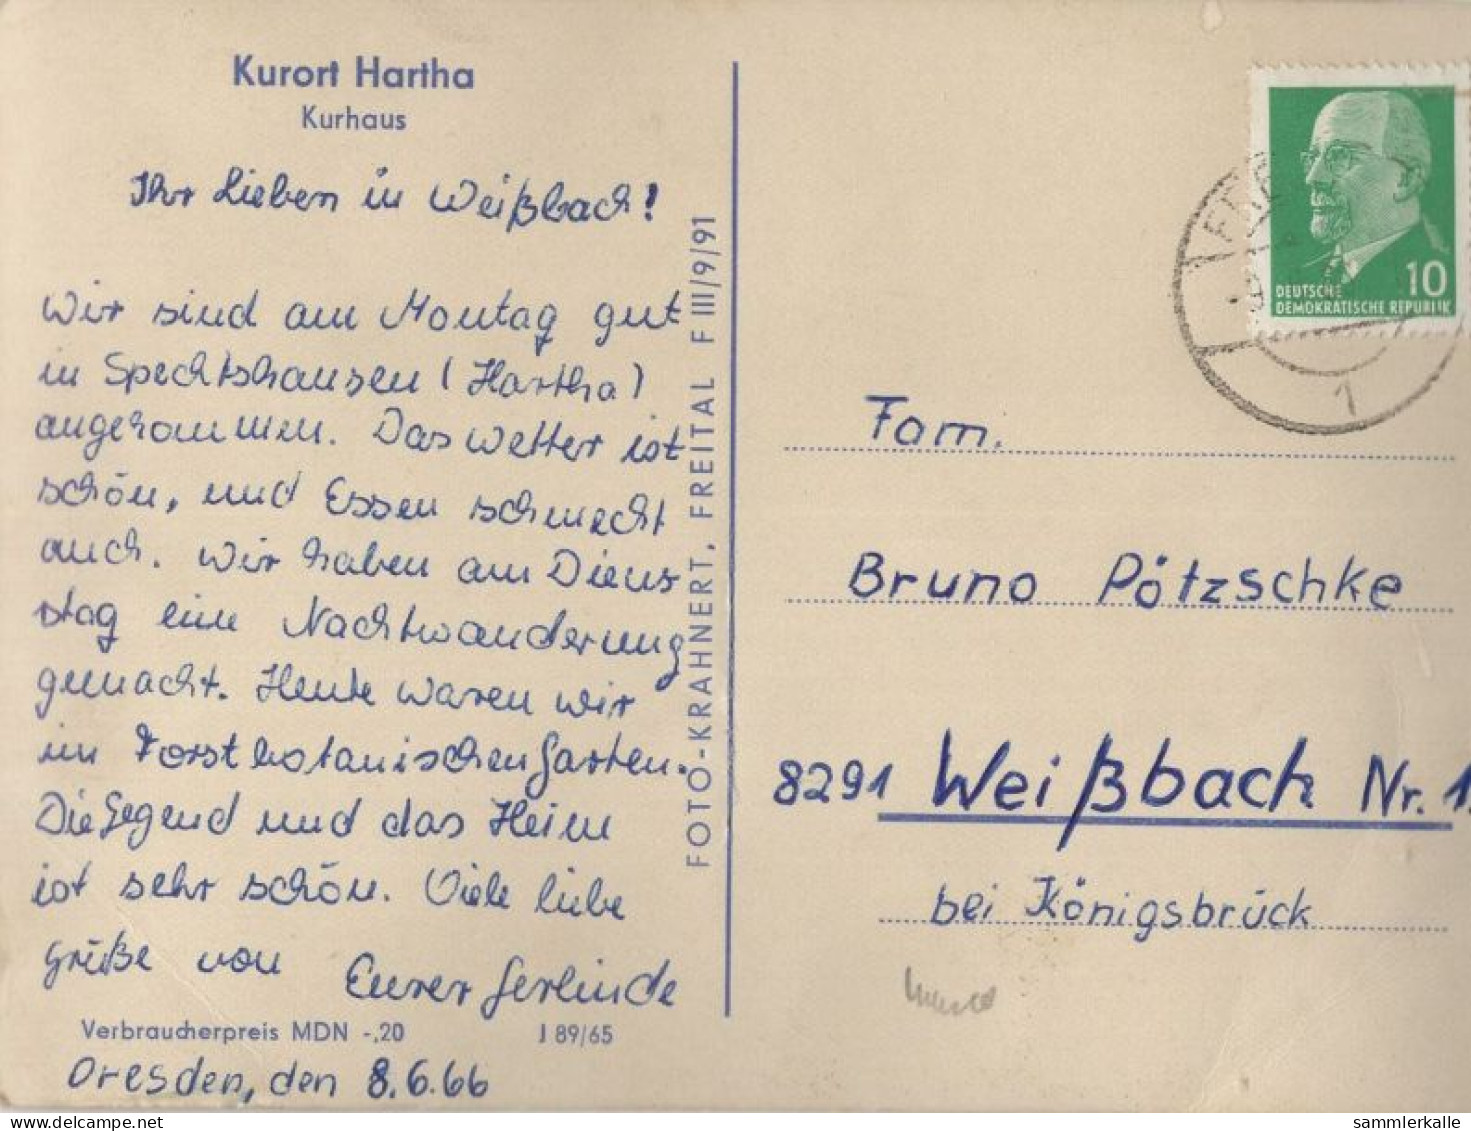 Kurort Hartha
Kurhaus
Ihr Lieben in Weißbach!
Wir sind am Montag gut
in Spechtshausen (Hartha)
angekommen. Das Wetter ist
schön, und Essen schmeckt
auch. Wir haben am Diens
stag eine Nachtwanderung
gemacht. Heute waren wir
im Forstbotanischen Garten.
Die Gegend und das Heim
ist sehr schön. Viele liebe
Grüße von Eurer Gerlinde
Verbraucherpreis MDN -,20 J 89/65
Dresden, den 8.6.66
FOTO-KRAHNERT, FREITAL F III/9/91
10
DEUTSCHE
DEMOKRATISCHE REPUBLIK
1
Fam.
Bruno Pötzschke
8291 Weißbach Nr. 1.
bei Königsbrück
www.delcampe.net
sammlerkalle